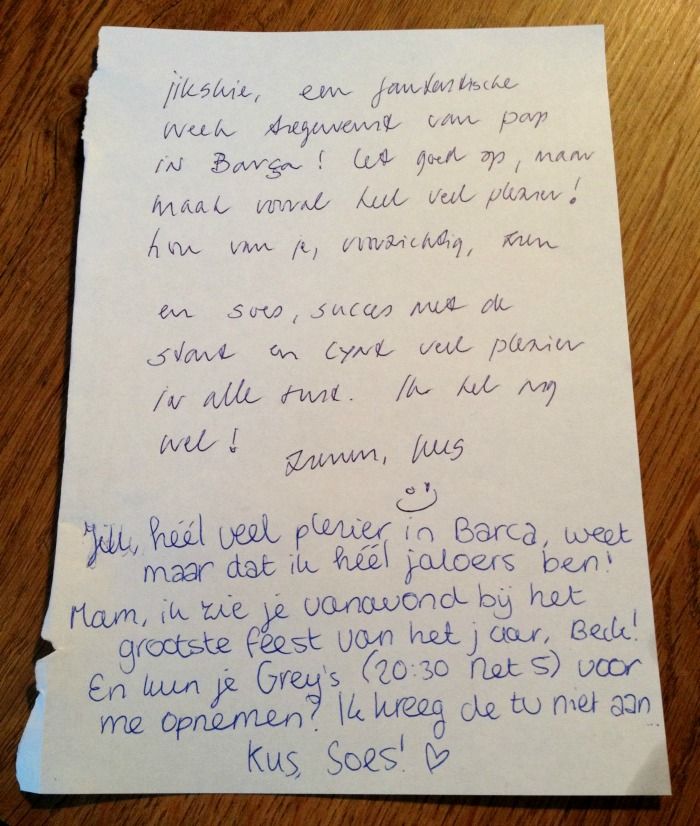 jikskie, een fantastische
week toegewenst van pap
in Barça! Let goed op, maar
maak vooral heel veel plezier!
hou van je, voorzichtig,
en soes, succes met de
start en veel plezier
in alle rust. Ik bel nog
wel! kus
Jikk, héél veel plezier in Barca, weet
maar dat ik héél jaloers ben!
Mam, ik zie je vanavond bij het
grootste feest van het jaar, Beck!
En kun je Grey's (20:30 Net 5) voor
me opnemen? Ik kreeg de tv niet aan
Kus, Soes!